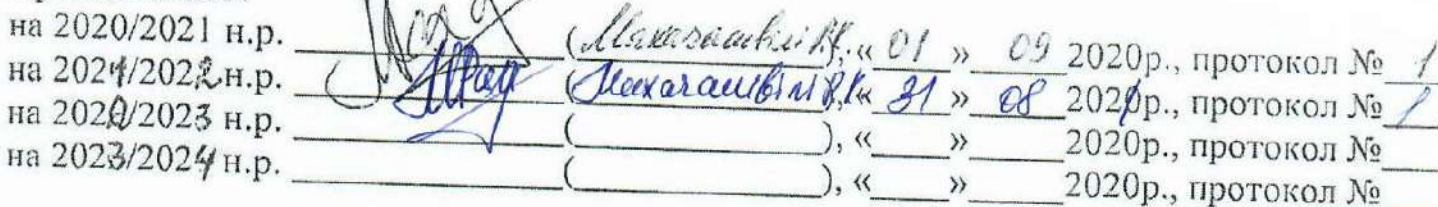 на 2020/2021 н.р. ____________ (Махачашвілі Р.К.), « 01 » 09 2020р., протокол № 1
на 2021/2022 н.р. ____________ (Махачашвілі Р.К.), « 31 » 08 2021р., протокол № 1
на 2022/2023 н.р. ____________ (____________), «____»______2020р., протокол №____
на 2023/2024 н.р. ____________ (____________), «____»______2020р., протокол №